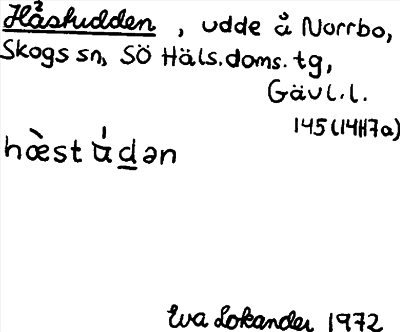 Håstudden, udde å Norrbo,
Skogs sn, SÖ Häls. doms. tg,
Gävl. l.
145 (14H7a)
hœ̀st ú̵d̲ən
Eva Lokander 1972